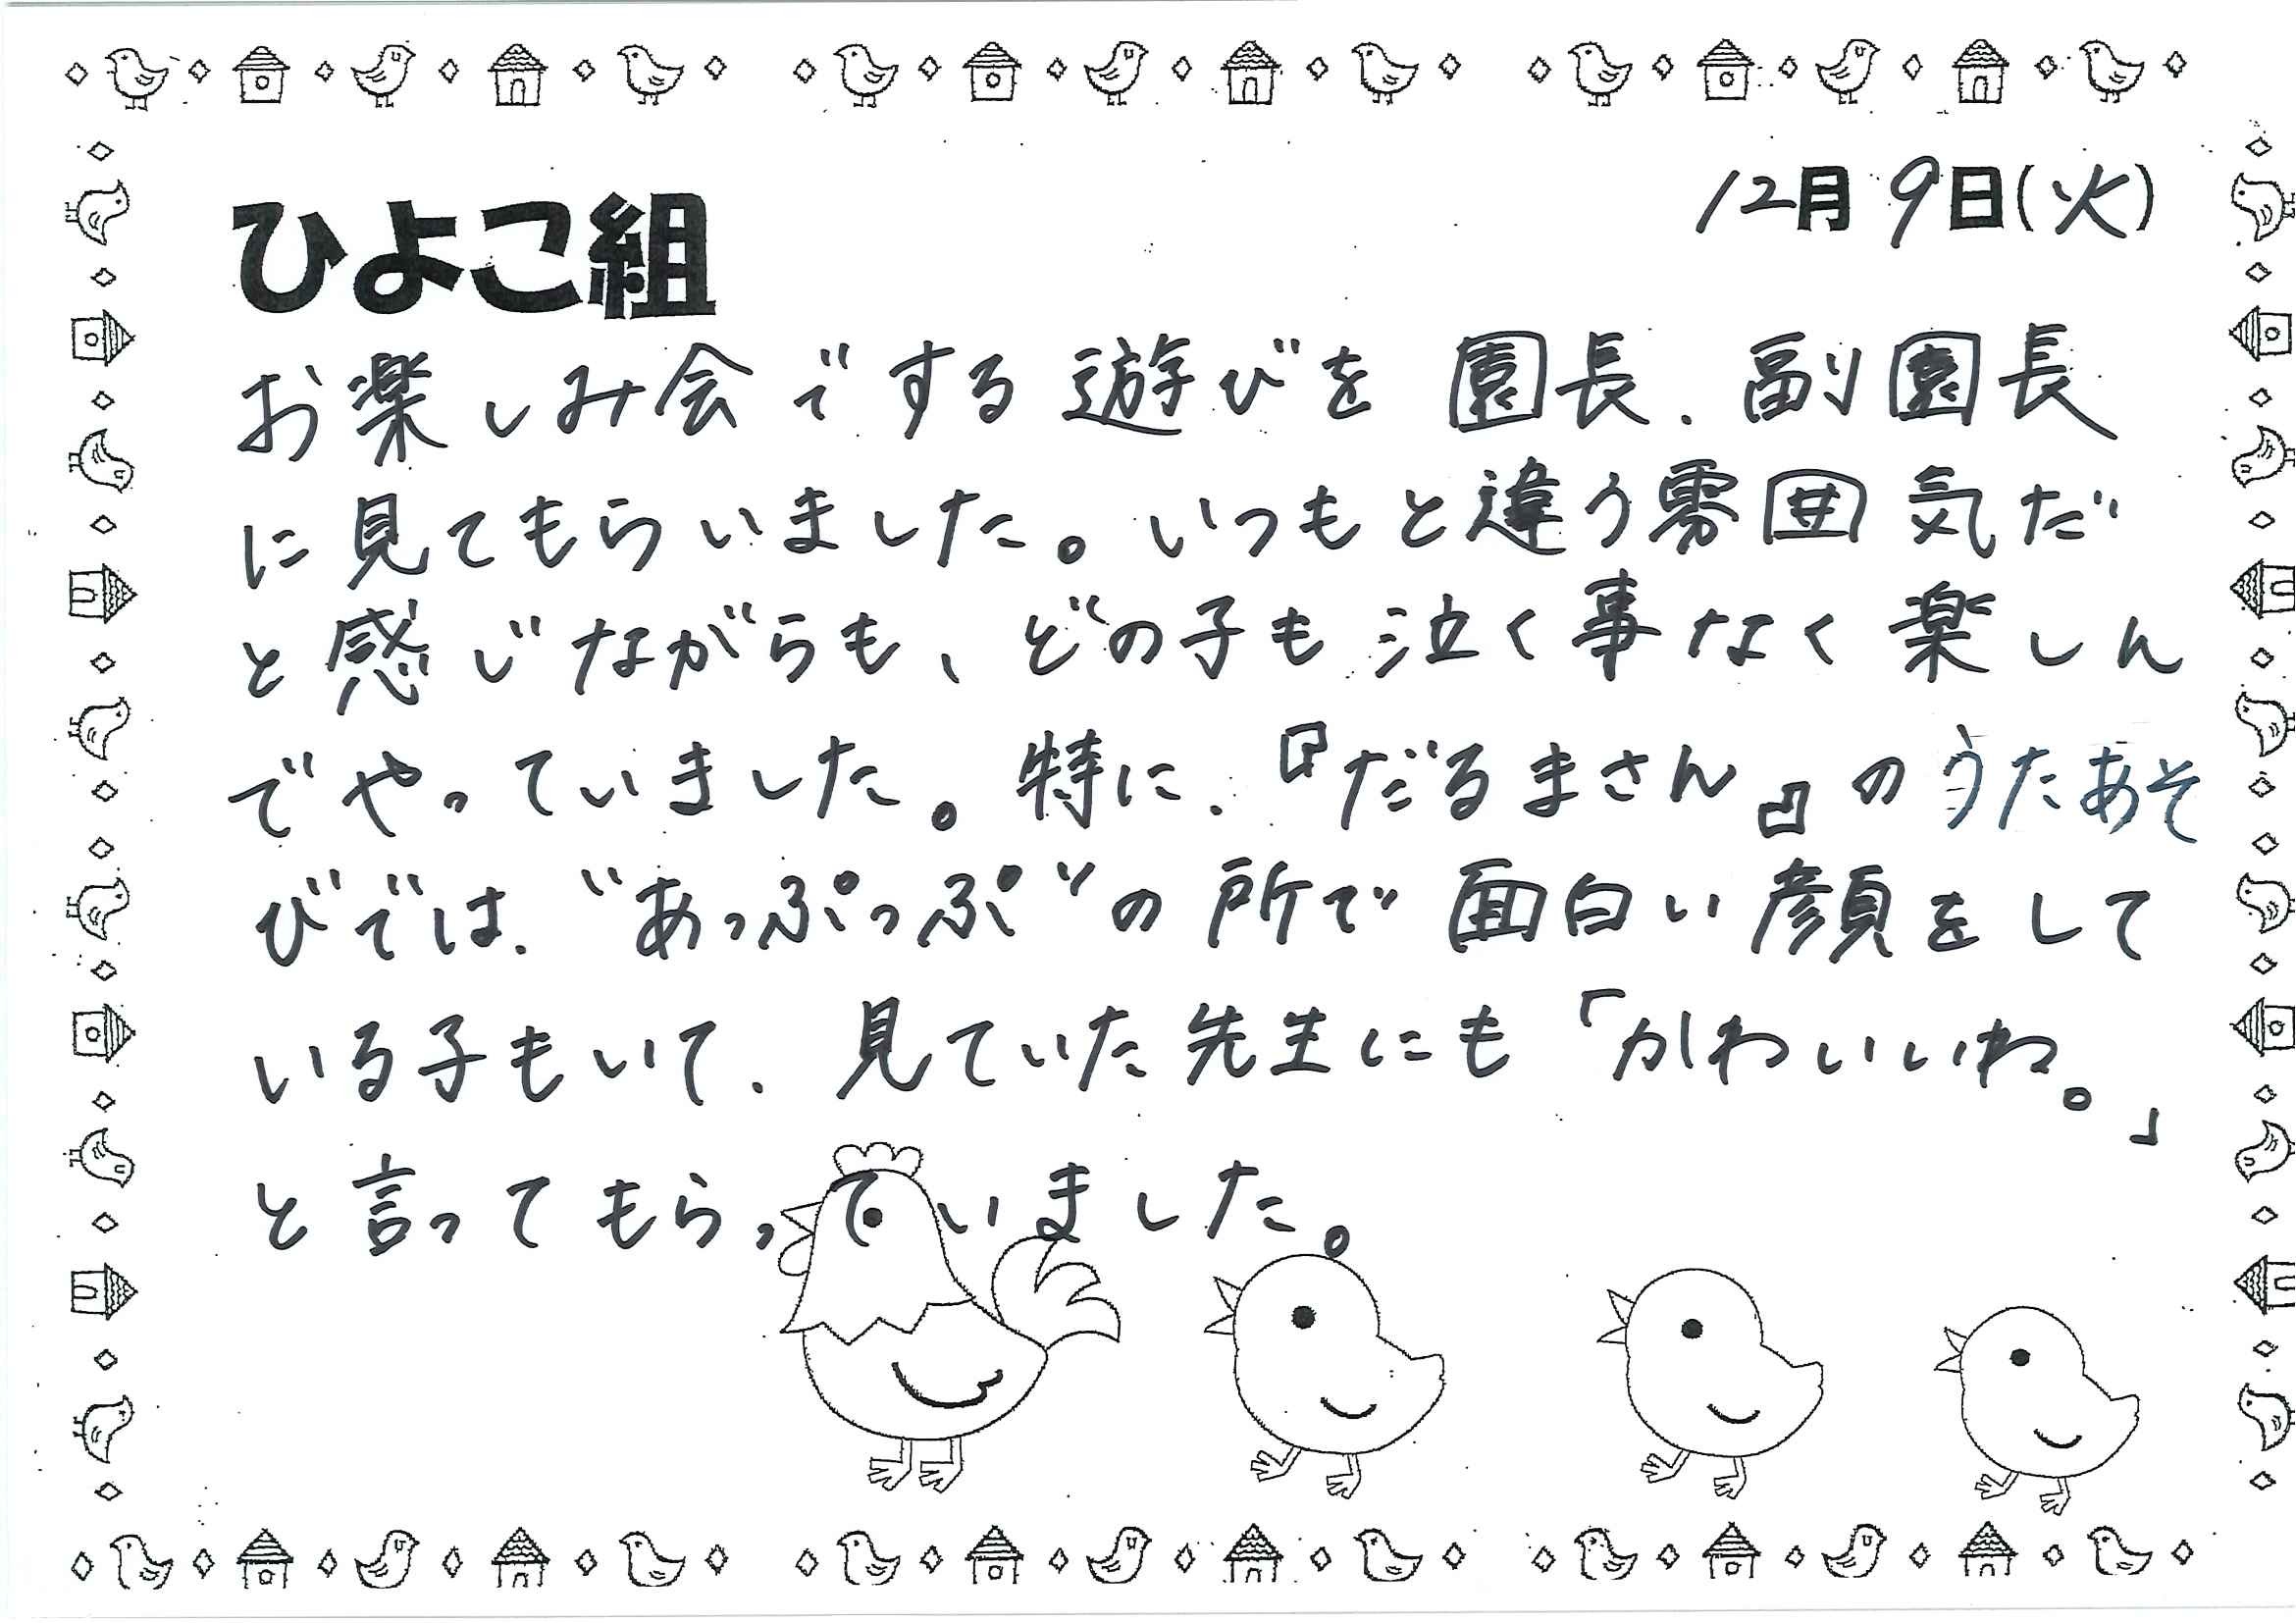 12月9日(火)
ひよこ組
お楽しみ会でする遊びを園長、副園長
に見てもらいました。いつもと違う雰囲気だ
と感じながらも、どの子も泣く事なく楽しん
でやっていました。特に、『だるまさん』のうたあそ
びでは、“あっぷっぷ”の所で面白い顔をして
いる子もいて、見ていた先生にも「かわいいわ。」
と言ってもらっていました。